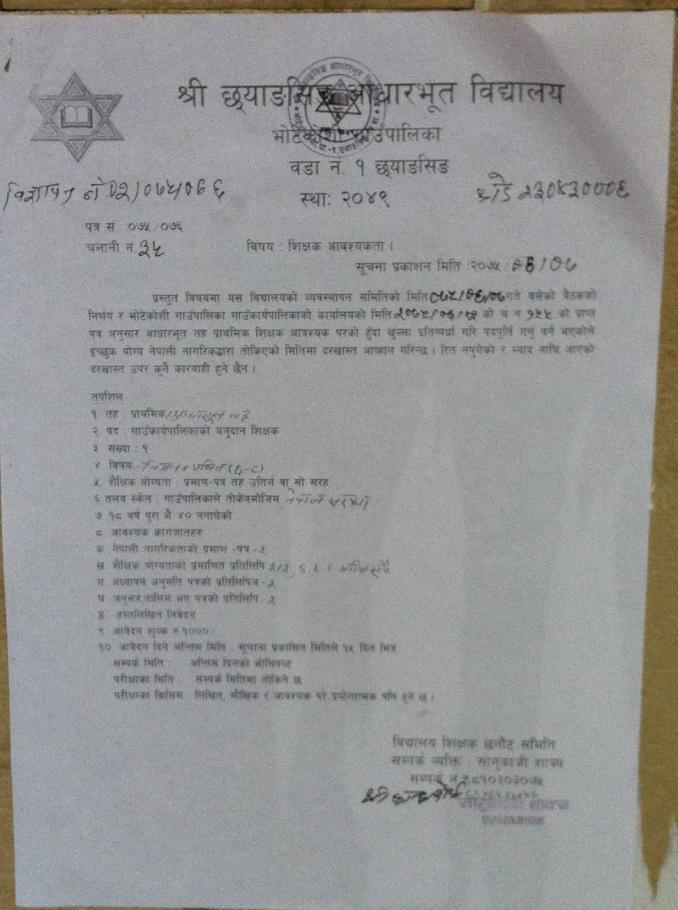 श्री छ्याङसिङ आधारभूत विद्यालय
भोटेकोशी गाउँपालिका
वडा नं. १ छ्याङसिङ
विज्ञापन नं 02/075076
स्था: २०४९
कोड २३०४३०००६
पत्र सं ०७५/०७६
चलानी न ३५
विषय : शिक्षक आवश्यकता ।
सूचना प्रकाशन मिति २०७५
प्रस्तुत विषयमा यस विद्यालयको व्यवस्थापन समितिको मिति गते बसेको बैठकको
निर्णय र भोटेकोशी गाउँपालिका गाउँकार्यपालिकाको कार्यालयको मिति को च न को प्राप्त
पत्र अनुसार आधारभूत तह प्राथमिक शिक्षक आवश्यक परको हुँदा खुल्ला प्रतिष्पर्धा गरि पदपुर्ति गर्नु पर्ने भएकोले
इच्छुक योग्य नेपाली नागरिकद्वारा तोकिएको मितिमा दरखास्त आव्हान गरिन्छ । रित नपुगेको र म्याद नाघि आएको
दरखास्त उपर कुनै कारवाही हुने छैन ।
तपशिल
१ तह : प्राथमिक/आधारभूत तह
२ पद : गाउँकार्यपालिकाको अनुदान शिक्षक
३ संख्या : १
४ विषय विज्ञान गणित (६-८)
५ शैक्षिक योग्यता : प्रमाण-पत्र तह उतिर्ण वा सो सरह
६ तलव स्केल : गाउँपालिकाले तोकेबमोजिम नेपाल सरकार
७ १८ वर्ष पुरा भै ४० ननाघेको
८ आवश्यक कागजातहरु
क नेपाली नागरिकताको प्रमाण -पत्र - १
ख शैक्षिक योग्यताको प्रमाणित प्रतिलिपि
ग अध्यापन अनुमति पत्रको प्रतिलिपि - १
घ अनुभव,तालिम भए पत्रको प्रतिलिपि - १
ङ हस्तलिखित निवेदन
९ आवेदन शुल्क रु १०००/
१० आवेदन दिने अन्तिम मिति : सूचना प्रकासित मितिले १५ दिन भित्र
सम्पर्क मिति : अन्तिम दिनको भोलिपल्ट
परीक्षाका मिति : सम्पर्क मितिमा तोकिने छ
परीक्षाका किसिम : लिखित, मौखिक र आवश्यक परे प्रयोगात्मक पनि हुने छ ।
विद्यालय शिक्षक छनौट समिति
सम्पर्क व्यक्ति : सानुकाजी शाक्य
सम्पर्क न